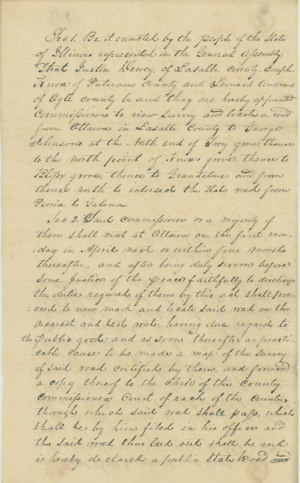 Sec 1. Be it enacted by the people of the State
of Illinois represented in the General Assembly
That Justin Dewey, of Lasalle County, Joseph
Knox of Putnam County and Leonard Andrews
of Ogle county be and they are hereby appointed
Commissioners to view survey and locate a road
from Ottawa in Lasalle County to George
Johnsons at the North end of Troy grove thence
to the north point of Knox's grove thence to
thence to Grandatour and from
thence north to intersect the State road from
Peoria to Galena
Sec 2. Said Commissioners or a majority of
them shall meet at Ottawa on the first mon-
day in April next or within four months
thereafter, and after being duly sworn before
Some Justice of the Peace faithfully to discharge
the duties required of them by this act shall pro-
ceed to view mark and locate said road on the
nearest and best route, having due regard to
the public good: and as soon thereafter as practi-
cable cause to be made a map of the survey
of said road certified by them, and forward
a copy thereof to the Clerk of the County
Commissioners Court of each of the Counties
through which said road shall pass, which
shall be by him filed in his office and
the said road thus laid out shall be and
is hereby declared a public State Road and